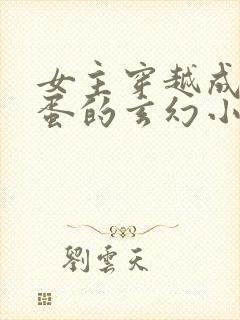 女主穿越成
蛋的玄幻小
劉雲天